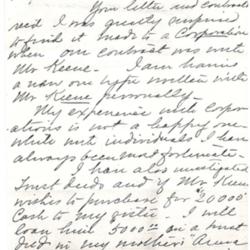 Your letter and contracts
recd I was greatly surprised
to find it made to a Corporation
when our contract was with
Mr Keene. I am having
a new one written with
Mr Keene personally.
My experience with corpor
ations is not a happy one
while with individuals I have
always been most fortunate.
I have also investigated
Trust deeds and if Mr Keene
wishes to purchase for $20000
Cash to my sister I will
loan him 5000 on a trust
deed in my mother's